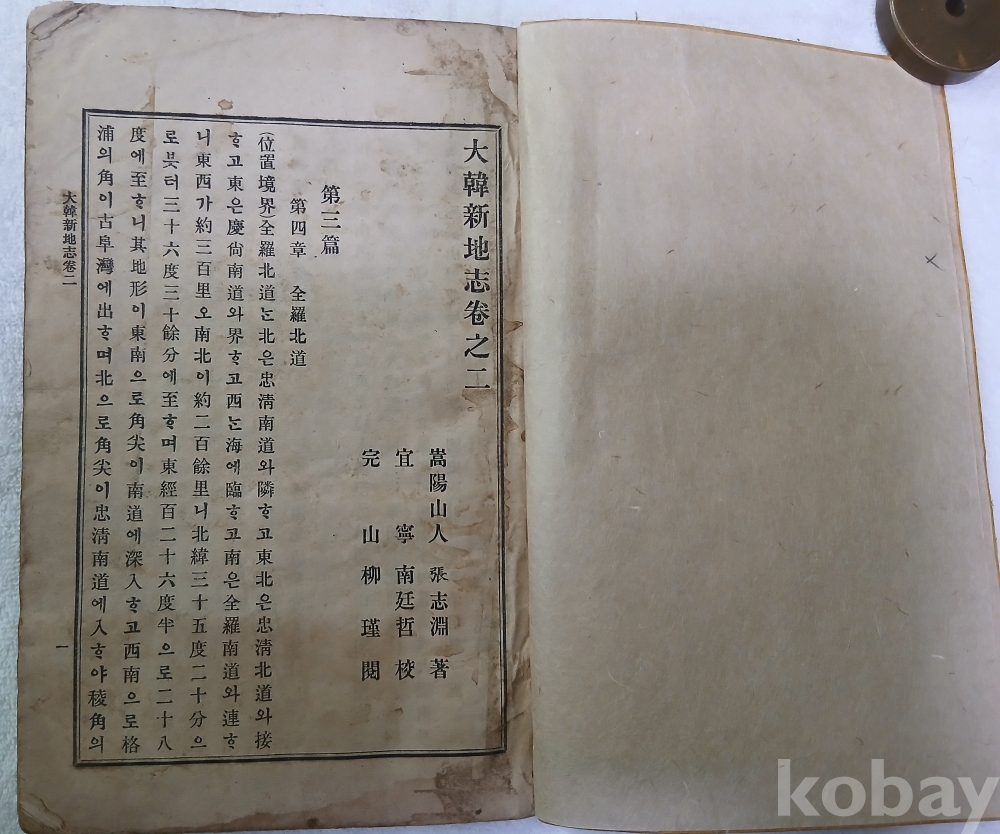 大韓新地志卷之二
嵩陽山人 張志淵 著
宜寧 南廷哲 校
完山 柳瑾 閱
第三篇
第四章 全羅北道
(位置境界)全羅北道ᄂᆞᆫ北은忠清南道와隣ᄒᆞ고東北은忠清北道와接
ᄒᆞ고東은慶尙南道와界ᄒᆞ고西ᄂᆞᆫ海에臨ᄒᆞ고南은全羅南道와連ᄒᆞ
니東西가約三百里오南北이約二百餘里니北緯三十五度二十分으
로븟터三十六度三十餘分에至ᄒᆞ며東經百二十六度半으로二十八
度에至ᄒᆞ니其地形이東南으로角尖이南道에深入ᄒᆞ고西南으로格
浦의角이古阜灣에出ᄒᆞ며北으로角尖이忠清南道에入ᄒᆞ야稜角의
大韓新地志卷二
一
kobay